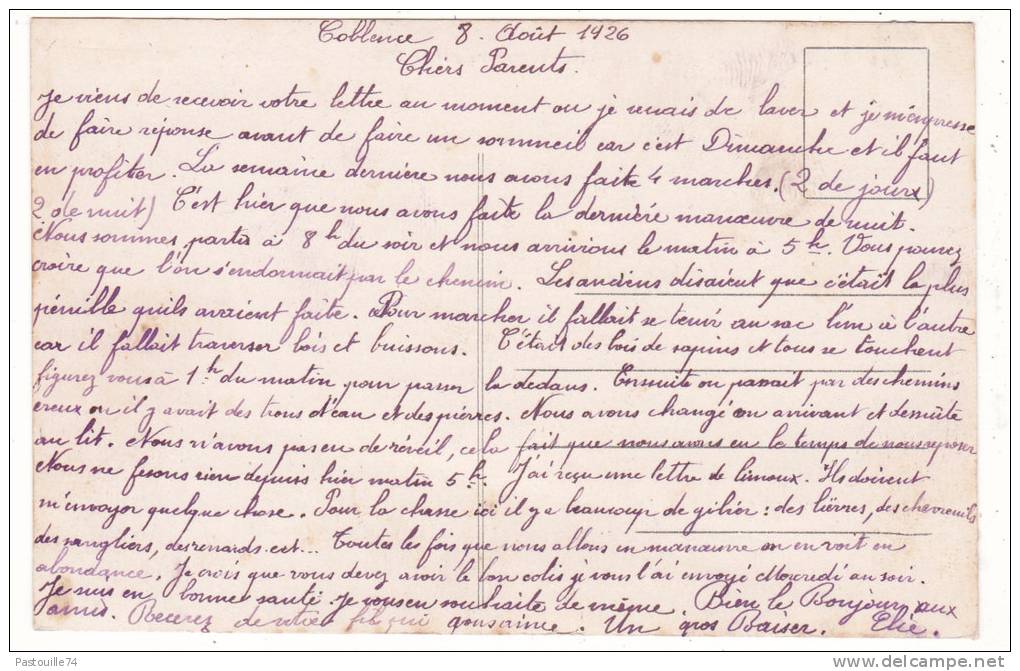 Coblence 8. Août 1926
Chers Parents.
Je viens de recevoir votre lettre au moment ou je venais de laver et je m'empresse
de faire réponse avant de faire un sommeil car c'est Dimanche et il faut
en profiter. La semaine dernière nous avons faite 4 marches. (2 de jours)
2 de nuit) C'est hier que nous avons faite la dernière manœuvre de nuit.
Nous sommes partis à 8h du soir et nous arrivions le matin à 5h. Vous pouvez
croire que l'on s'endormait par le chemin. Les anciens disaient que c'était la plus
pénible quils avaient faite. Pour marcher il fallait se tenir au sac l'un à l'autre
car il fallait traverser bois et buissons. C'était des bois de sapins et tous se touchent
figurez vous à 1h du matin pour passer la dedans. Ensuite on passait par des chemins
creux ou il y avait des trous d'eau et des pierres. Nous avons changé en arrivant et de suite
au lit. Nous n'avons pas eu de réveil, cela fait que nous avons eu le temps de nous reposer
Nous ne fesons rien depuis hier matin 5h. J'ai reçu une lettre de Limoux. Ils doivent
m'envoyer quelque chose. Pour la chasse ici il y a beaucoup de gibier : des lièvres, des chevreuils
des sangliers, des renards. ect... Toutes les fois que nous allons en manœuvre on en voit en
abondance. Je crois que vous devez avoir le bon colis je vous l'ai envoyé Mercredi au soir.
Je suis en bonne santé. Je vous en souhaite de même. Bien le Bonjour aux
amis. Recevez de votre fils qui Un gros Baiser. Elie.
Pastouille74
http://www.delcampe.net